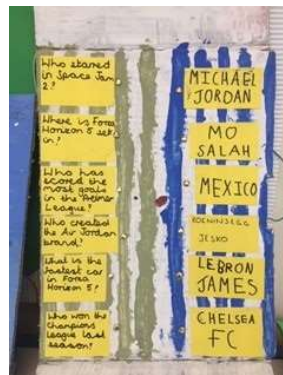 Who starred
in Space Jam
2?
Where is Forza
Horizon 5 set
in?
Who has
scored the
most goals
in the Premier
League?
Who created
the Air Jordan
brand?
What is the
fastest car
in Forza
Horizon 5?
Who won the
Champions
league last
season?
MICHAEL
JORDAN
MO
SALAH
MEXICO
KOENINSEGG
JESKO
LEBRON
JAMES
CHELSEA
FC